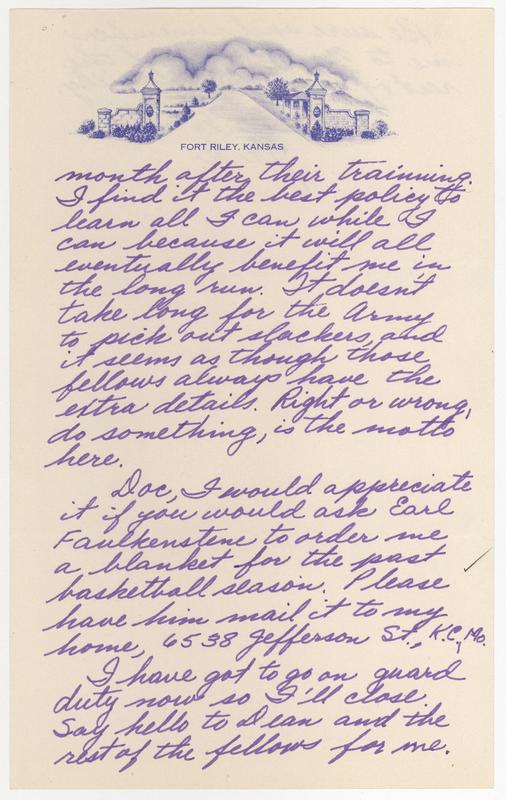 FORT RILEY, KANSAS
month after their trainning.
I find it the best policy to
learn all I can while I
can because it will all
eventually benefit me in
the long run. It doesn't
take long for the Army
to pick out slackers, and
it seems as though those
fellows always have the
extra details. Right or wrong,
do something, is the motto
here.
Doc, I would appreciate
it if you would ask Earl
Faulkenstene to order me
a blanket for the past
basketball season. Please
have him mail it to my
home, 6538 Jefferson St., K.C., Mo.
I have got to go on guard
duty now so I'll close.
Say hello to Dean and the
rest of the fellows for me.